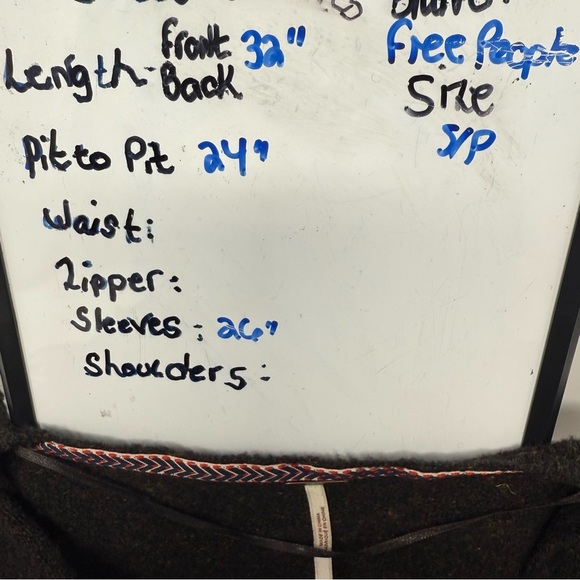 Front 32"
Length Back
Free People
Size
S/P
Pit to Pit 24"
Waist:
Zipper:
Sleeves: 26"
Shoulders:
MADE IN CHINA